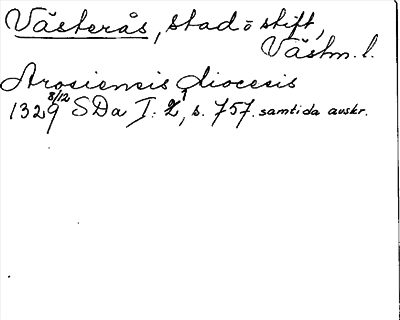 Västerås, stad o stift,
Västm. l.
Arosiensis diocesis
1329 8/12 SDa I: 2, s. 757. samtida avskr.